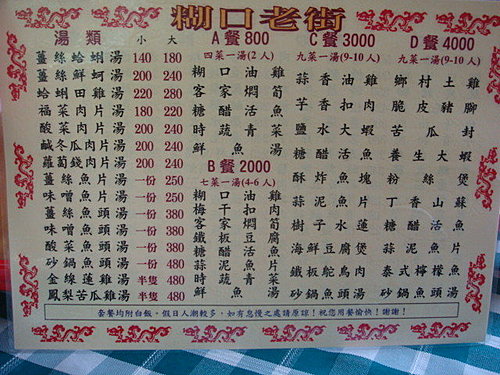 糊口老街
湯類 小 大
薑絲蛤蜊湯 140 180
薑絲鮮蚵湯 200 240
蛤蜊田雞湯 220 280
福菜肉片湯 180 220
酸菜肉片湯 200 240
鹹冬瓜肉片湯 200 240
蘿蔔錢肉片湯 200 240
薑絲魚片湯 一份 250
味噌魚片湯 一份 250
薑絲魚頭湯 一份 380
味噌魚頭湯 一份 380
酸菜魚頭湯 一份 480
砂鍋魚頭湯 一份 480
金線蓮雞湯 半隻 480
鳳梨苦瓜雞湯 半隻 480
A餐 800
四菜一湯(2人)
糊口油雞
客家燜筍
糖醋活魚
時蔬青菜
鮮魚湯
B餐 2000
七菜一湯(4-6人)
糊口油雞
梅干扣肉
客家燜筍
鐵板豆腐
糖醋活魚
蒜泥魚片
時蔬青菜
鮮魚湯
C餐 3000
九菜一湯(9-10人)
蒜香油雞
芋香扣肉
鹽水大蝦
糖醋活魚
酥炸魚塊
蒜泥魚片
樹子水蓮
海鮮豆腐煲
鐵板鴕鳥肉
砂鍋魚頭湯
D餐 4000
九菜一湯(9-10人)
鄉村土雞
脆皮豬腳
苦瓜封
養生大蝦
粉絲煲
丁香山蘇
糖醋活魚
蒜泥魚片
泰式檸檬魚
砂鍋魚頭湯
套餐均附白飯。假日人潮較多,如有怠慢之處請原諒!祝您用餐愉快!謝謝!